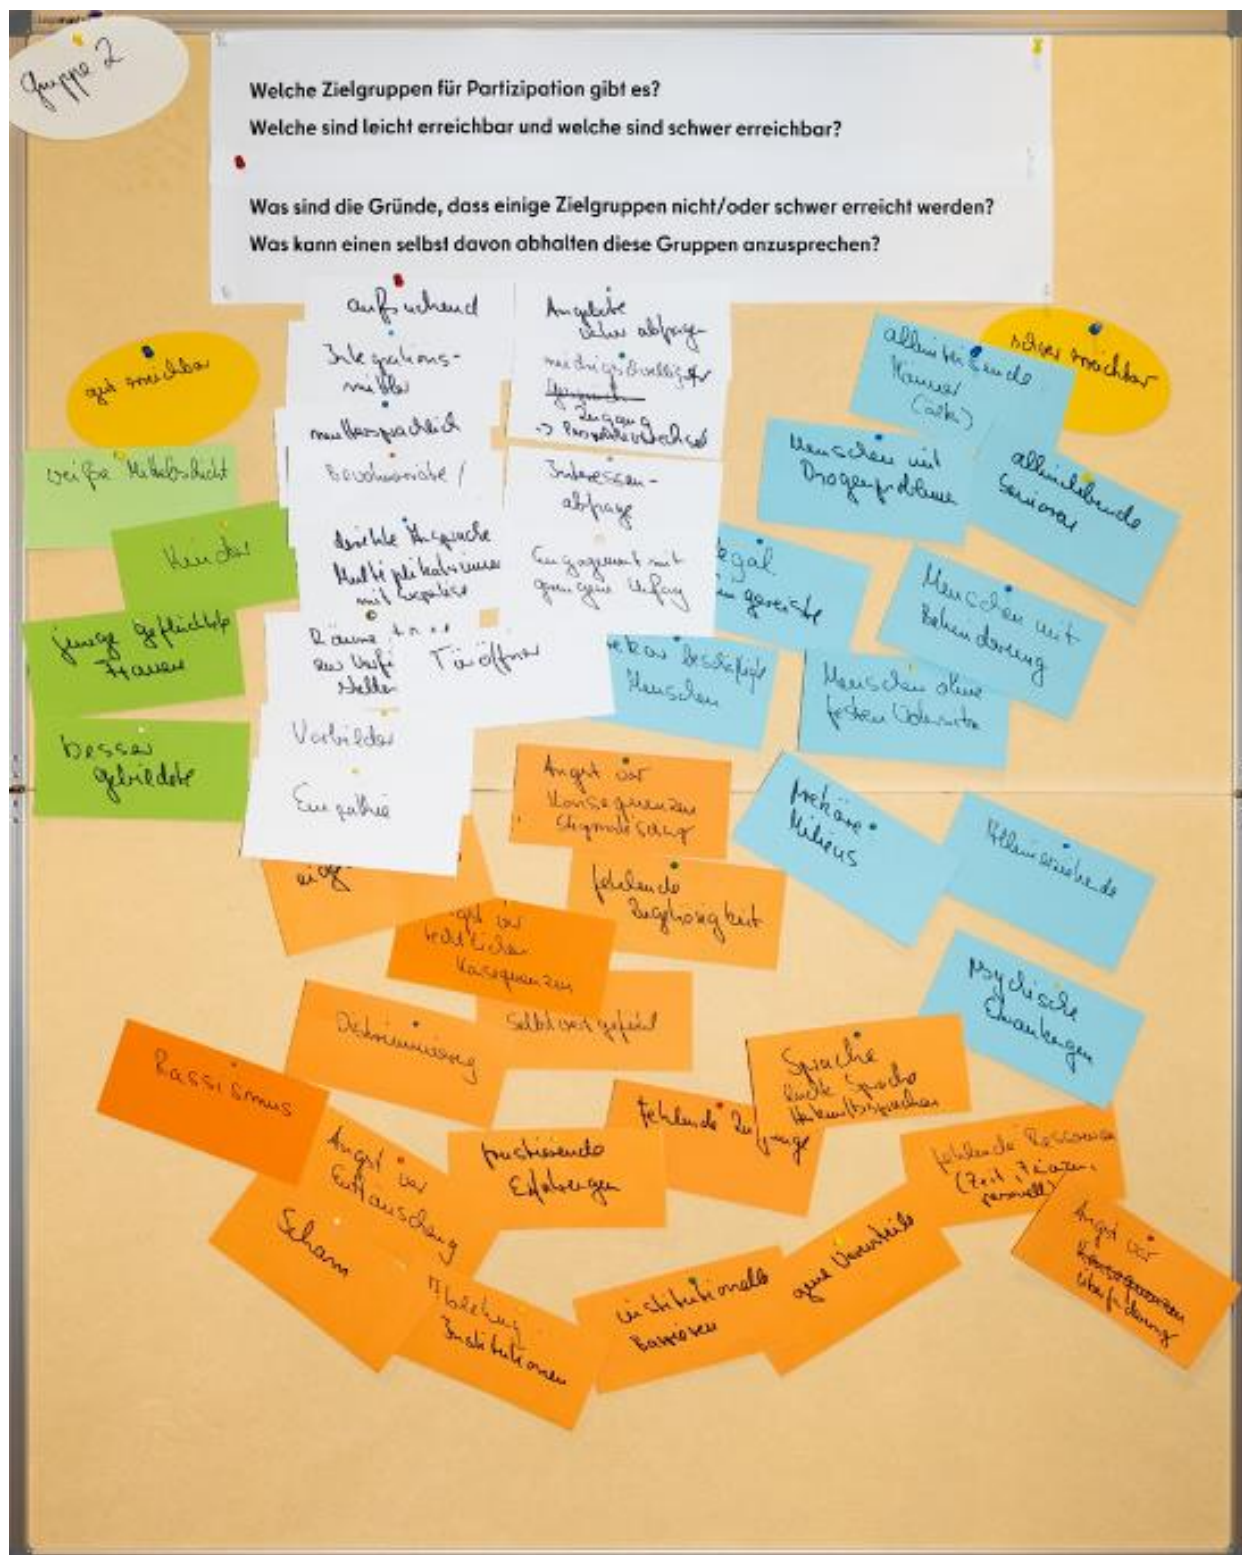 Gruppe 2
Welche Zielgruppen für Partizipation gibt es?
Welche sind leicht erreichbar und welche sind schwer erreichbar?
Was sind die Gründe, dass einige Zielgruppen nicht/oder schwer erreicht werden?
Was kann einen selbst davon abhalten diese Gruppen anzusprechen?
gut erreichbar
weiße Mittelschicht
Kinder
junge geflüchtete
Frauen
besser
gebildete
aufsuchend
Integrations-
mittler
muttersprachlich
direkte Ansprache
Multiplikatorinnen
mit Expertise
Räume
zur Verfü
stellen
Vorbilder
Empathie
Angebote
vorher abfragen
niedrigschwelliger
Zugang
-> Perspektivwechsel
Interessen-
abfrage
Engagement mit
geringem Umfang
Türöffner
schwer erreichbar
alleinreisende
Männer
Menschen mit
Drogenproblemen
alleinlebende
Senioren
egal
eingereiste
Menschen mit
Behinderung
prekär beschäftigte
Menschen
Menschen ohne
festen Wohnsitz
prekäre
Milieus
Alleinerziehende
Psychische
Erkrankungen
Angst vor
Konsequenzen
Stigmatisierung
fehlende
Zugehörigkeit
gst vor
rechtlichen
Konsequenzen
Selbstwertgefühl
Diskriminierung
Rassismus
Sprache
leichte Sprache
Herkunftssprachen
fehlende Zugänge
frustrierende
Erfahrungen
Angst vor
Enttäuschung
Scham
fehlende Ressourcen
(Zeit, Finanzen,
personell)
Angst vor
Überforderung
Ablehnung
Institutionen
institutionelle
Barrieren
Vorurteile